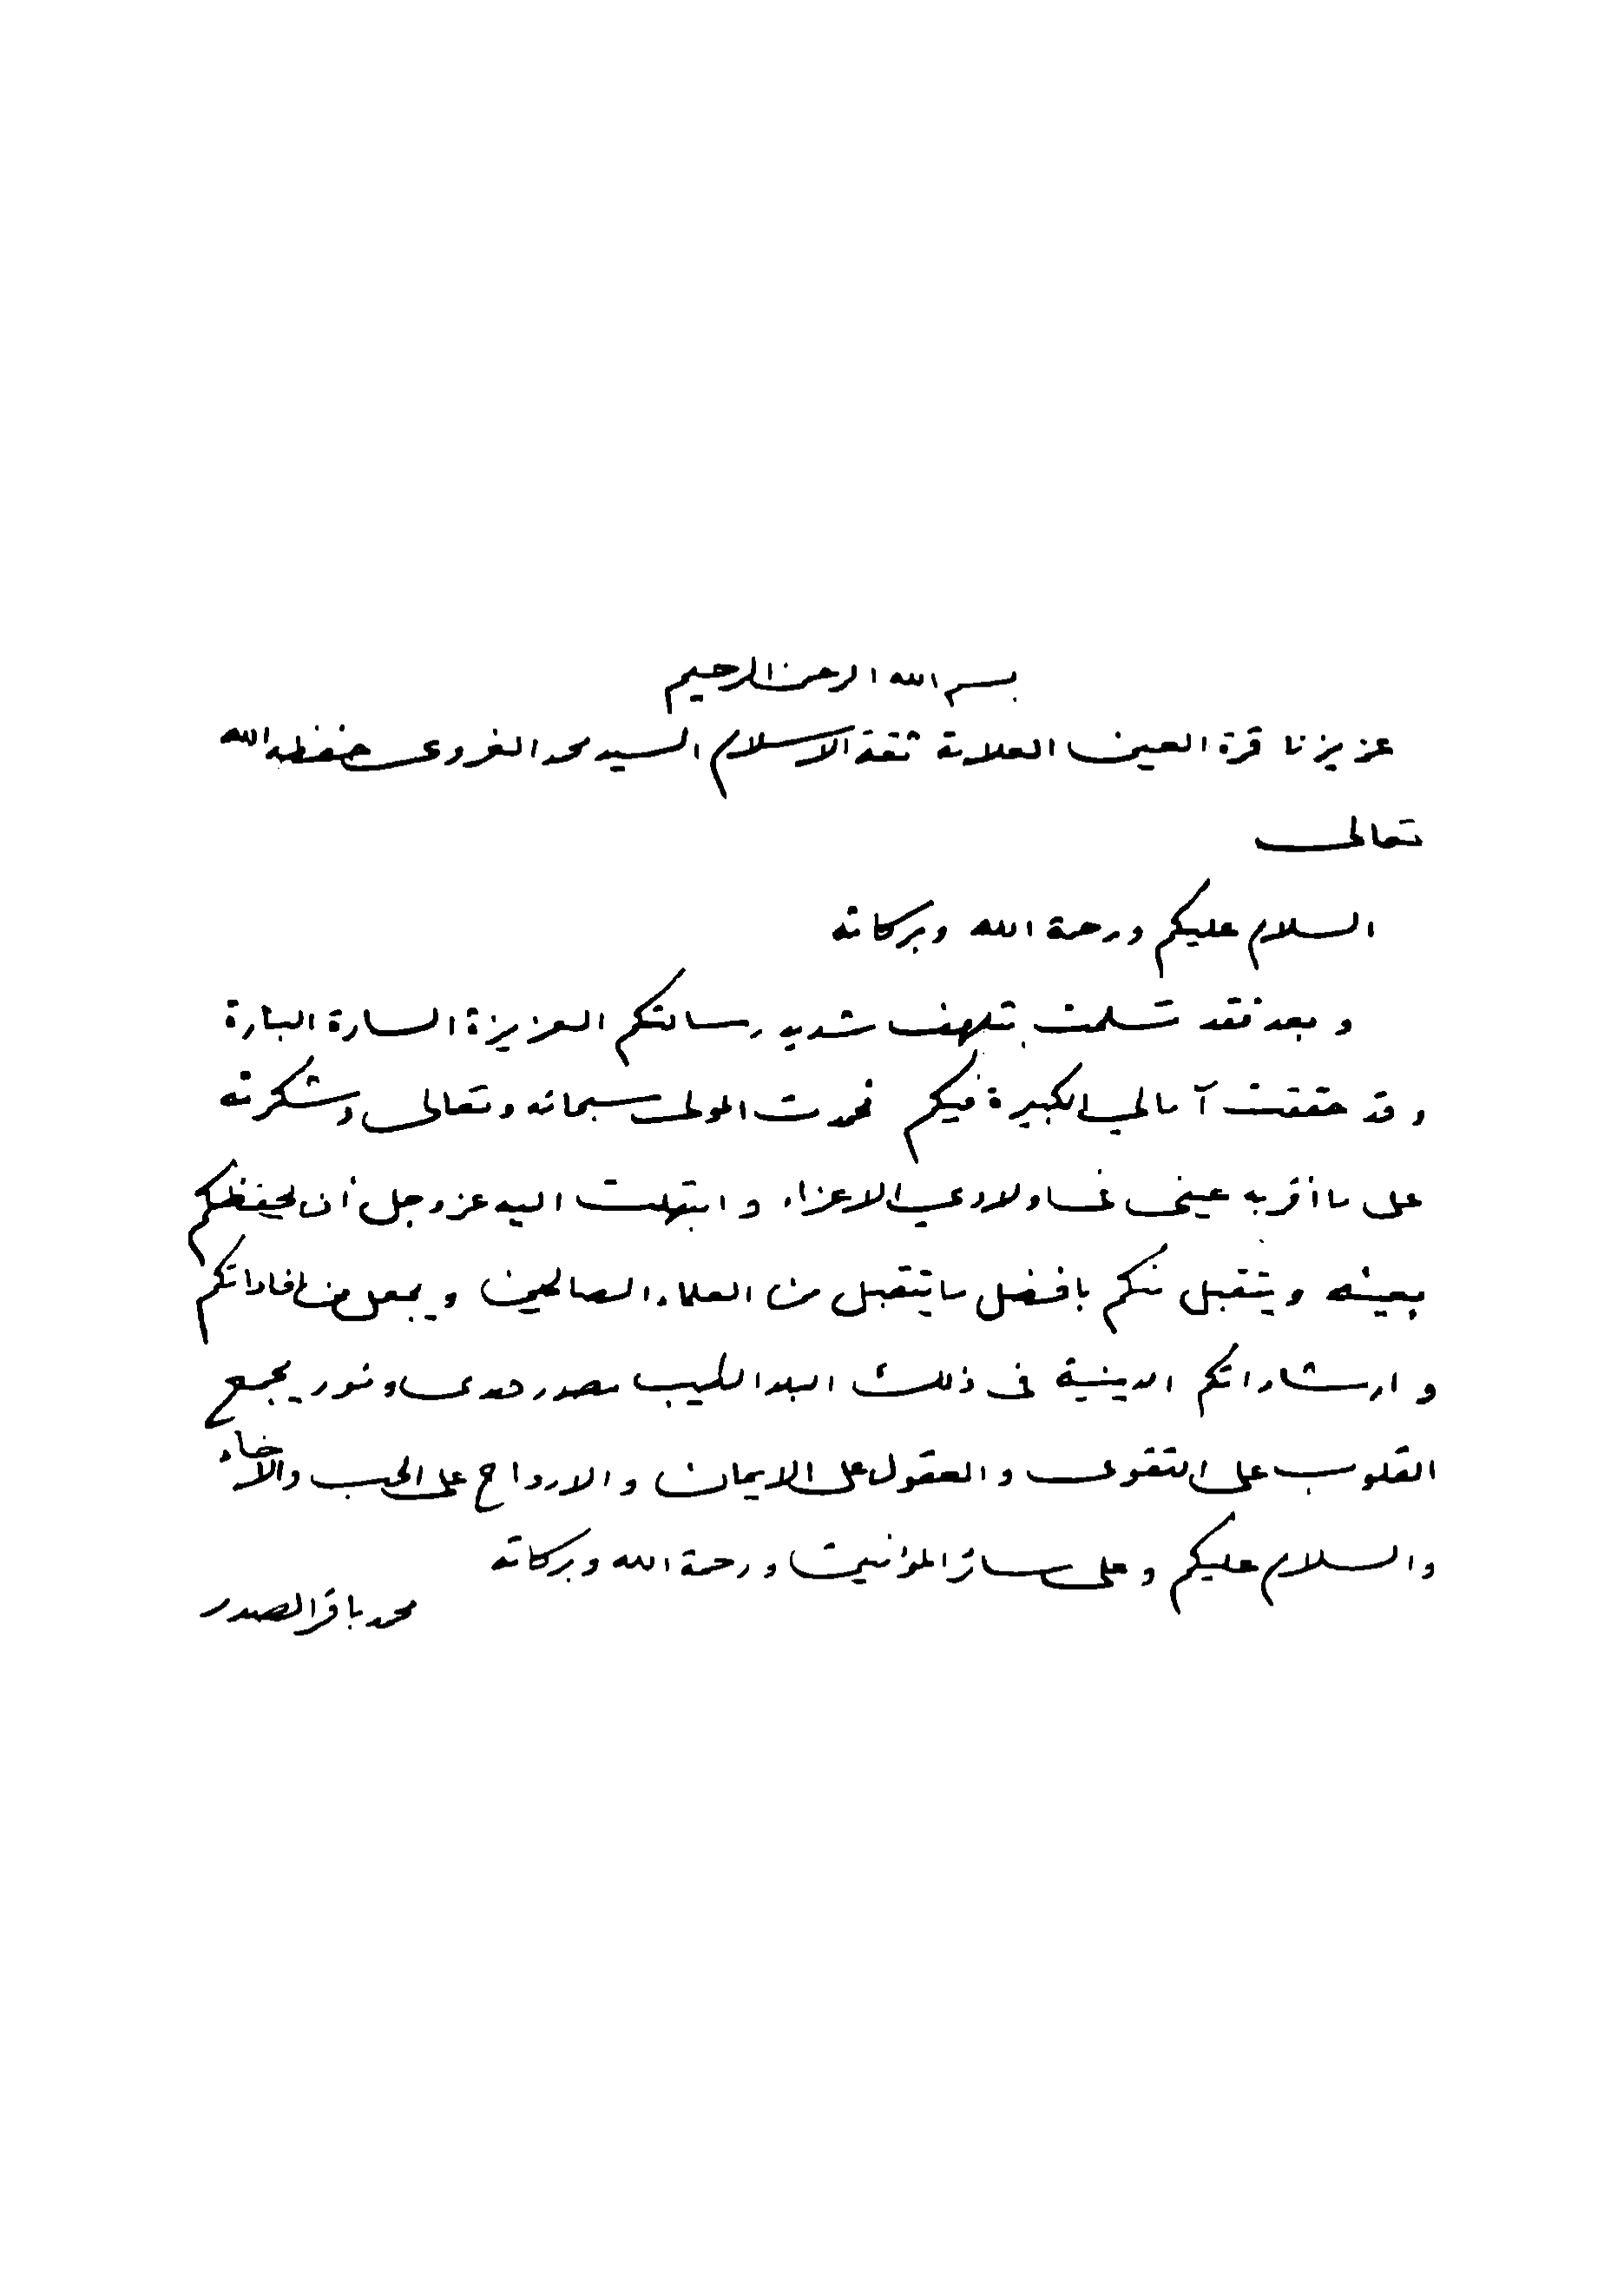 بسم الله الرحمن الرحيم
عزيزنا قرة العين العلامة ثقة الاسلام السيد محمد الغروي حفظه الله
تعالى
السلام عليكم ورحمة الله وبركاته
وبعد فقد تسلمت بتلهف شديد رسالتكم العزيزة السارة البارة
وقد حققت آمالي الكبيرة فيكم فحمدت المولى سبحانه وتعالى وشكرته
على ما أقر به عيني في اولادي الاعزاء وابتهلت اليه عز وجل أن يحفظكم
بعينه ويتقبل منكم بافضل ما يتقبل من العلماء الصالحين ويجعل من افاداتكم
وارشاداتكم الدينية في ذلك البلد الطيب مصدر هدى ونور يجمع
القلوب على التقوى والعقول على الايمان والارواح على الحب والاخاء
والسلام عليكم وعلى سائر المؤمنين ورحمة الله وبركاته
محمد باقر الصدر